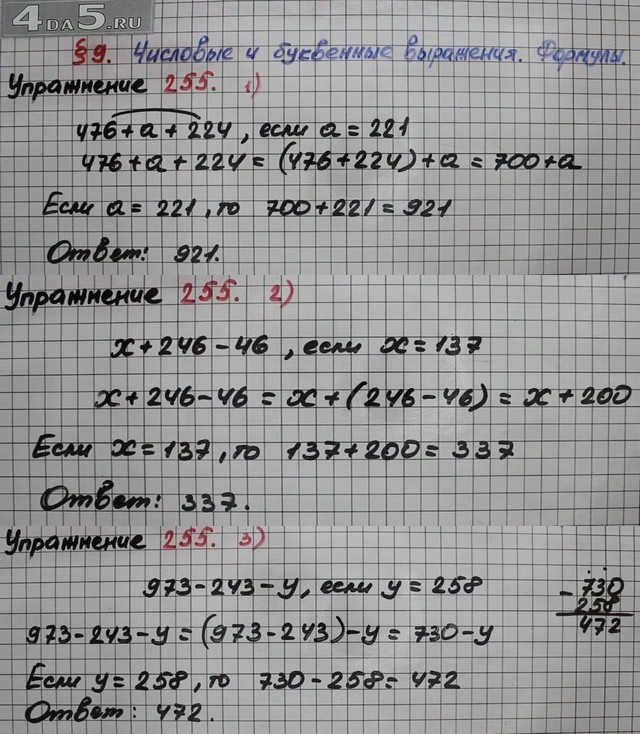 4DA5.RU
§9. Числовые и буквенные выражения. Формулы.
Упражнение 255. 1)
476+a+224, если a=221
476+a+224=(476+224)+a=700+a
Если a=221, то 700+221=921
Ответ: 921.
Упражнение 255. 2)
x+246-46, если x=137
x+246-46=x+(246-46)=x+200
Если x=137, то 137+200=337
Ответ: 337.
Упражнение 255. 3)
973-243-y, если y=258
973-243-y=(973-243)-y=730-y
Если y=258, то 730-258=472
Ответ: 472.
-730
258
472